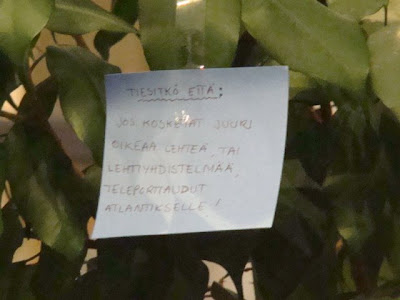 TIESITKÖ ETTÄ:
JOS KOSKETAT JUURI
OIKEAA LEHTEÄ, TAI
LEHTIYHDISTELMÄÄ,
TELEPORTTAUDUT
ATLANTIKSELLE!